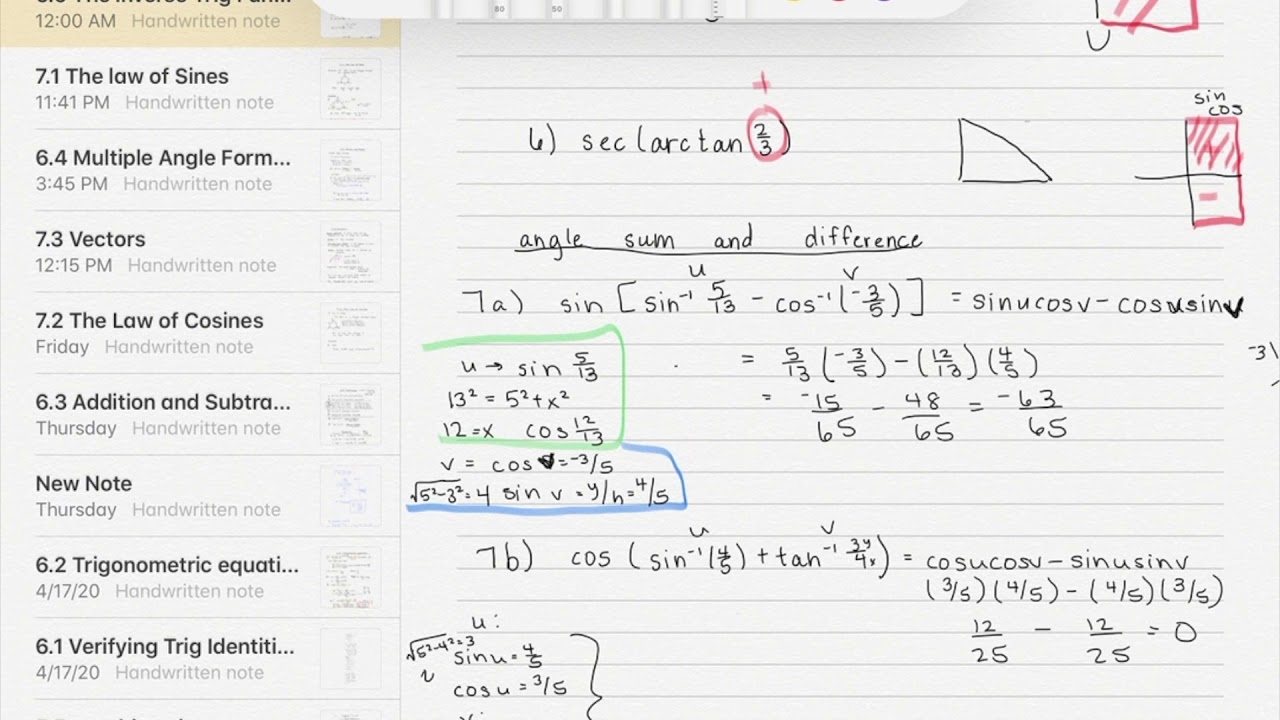 12:00 AM Handwritten note
7.1 The law of Sines
11:41 PM Handwritten note
6.4 Multiple Angle Form...
3:45 PM Handwritten note
7.3 Vectors
12:15 PM Handwritten note
7.2 The Law of Cosines
Friday Handwritten note
6.3 Addition and Subtra...
Thursday Handwritten note
New Note
Thursday Handwritten note
6.2 Trigonometric equati...
4/17/20 Handwritten note
6.1 Verifying Trig Identiti...
4/17/20 Handwritten note
80 50
+
6) sec(arctan 2/3)
sin
cos
+
-
angle sum and difference
u v
7a) sin [sin⁻¹ 5/13 - cos⁻¹(-3/5)] = sinucosv - cosusinv
= 5/13 (-3/5) - (12/13)(4/5)
= -15/65 - 48/65 = -63/65
-3\
u → sin 5/13
13² = 5² + x²
12 = x cos 12/13
v = cos v = -3/5
√5²-3² = 4 sin v = y/h = 4/5
u v
7b) cos (sin⁻¹(4/5) + tan⁻¹ 3y/4x) = cosucosv - sinusinv
(3/5)(4/5) - (4/5)(3/5)
12/25 - 12/25 = 0
u:
√5²-4² = 3
sinu = 4/5
cosu = 3/5